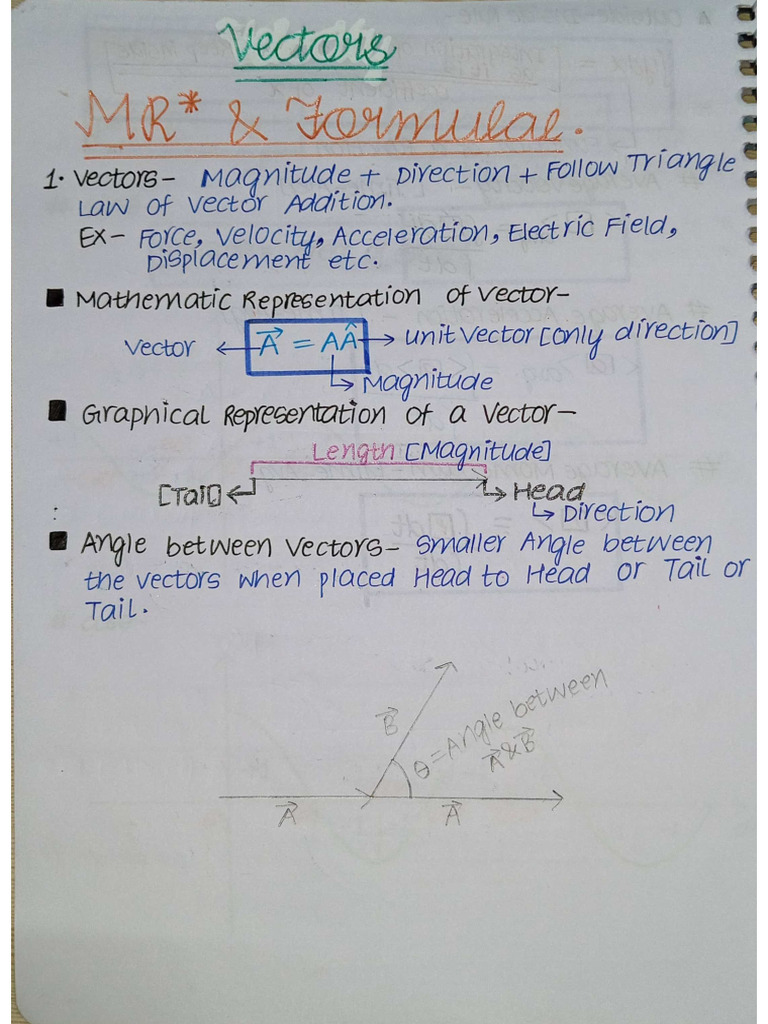 Vectors
MR* & Formulae.
1. Vectors - Magnitude + Direction + Follow Triangle
Law of Vector Addition.
Ex - Force, Velocity, Acceleration, Electric Field,
Displacement etc.
■ Mathematic Representation of Vector-
Vector ← A⃗ = AÂ → unit Vector [only direction]
↳ Magnitude
■ Graphical Representation of a Vector-
Length [Magnitude]
[Tail] ← ↳ Head
↳ Direction
:
■ Angle between Vectors- Smaller Angle between
the vectors when placed Head to Head or Tail or
Tail.
B⃗
θ = Angle between
A⃗ & B⃗
A⃗ A⃗